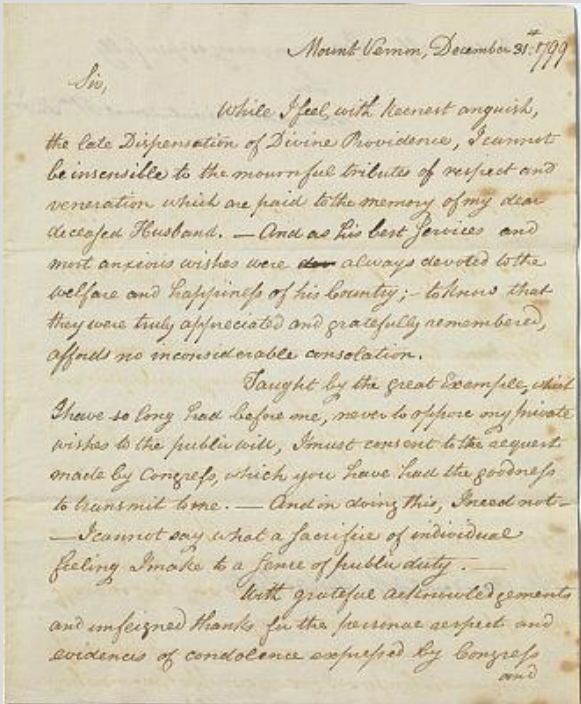 Mount Vernon, December 31st. 1799
Sir,
While I feel, with keenest anguish,
the late Dispensation of Divine Providence, I cannot
be insensible to the mournful tributes of respect and
veneration which are paid to the memory of my dear
deceased Husband. — And as his best services and
most anxious wishes were always devoted to the
welfare and happiness of his Country; — to know that
they were truly appreciated and gratefully remembered,
affords no inconsiderable consolation.
Taught by the great Example, which
I have so long had before me, never to oppose my private
wishes to the public will, I must consent to the request
made by Congress, which you have had the goodness
to transmit to me. — And in doing this, I need not —
— I cannot say what a sacrifice of individual
feeling I make to a sence of public duty. —
With grateful acknowledgements
and unfeigned thanks for the personal respect and
evidences of condolence expressed by Congress
and